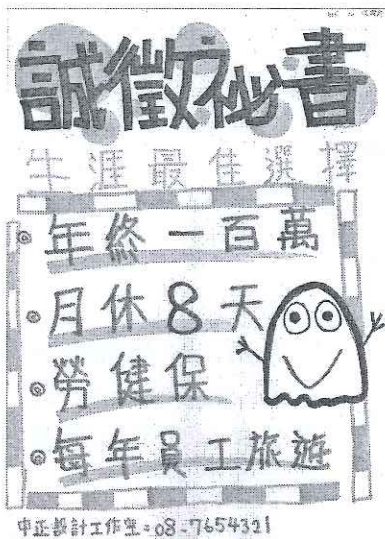 誠徵祕書
生涯最佳選擇
年終一百萬
月休8天
勞健保
每年員工旅遊
中正設計工作室:08-7654321